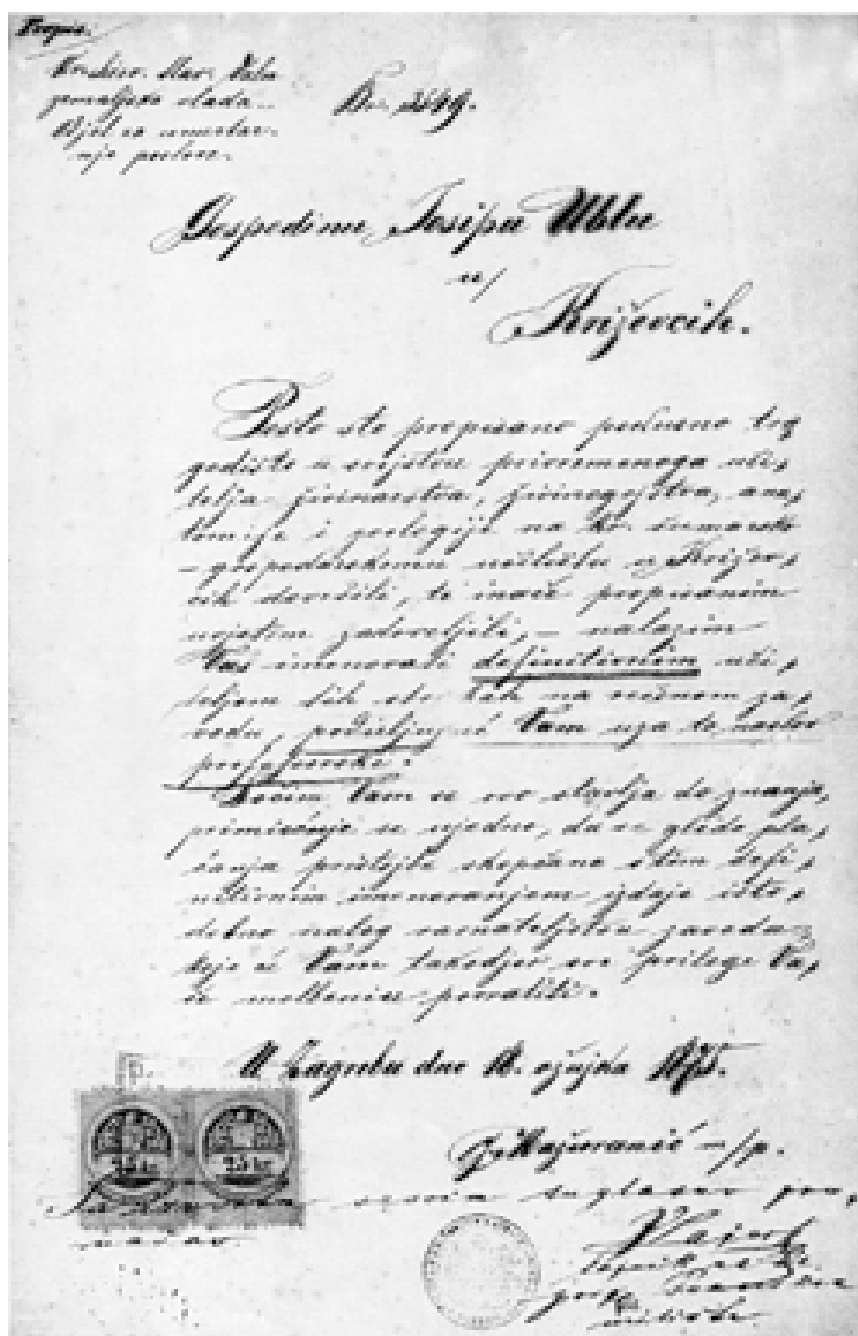 Kr. hrv. slav. dalm.
zemaljska vlada.
Odjel za unutar-
nje poslove.
Br. 2649.
Gospodinu Josipu Ublu
u
Križevcih.
Pošto ste propisano pokusno tro
godište u svojstvu privremenoga uči,
telja živinarstva, živinogojstva, ana,
tomije i zoologije na kr. šumarsko
-gospodarskomu učilištu u Križev,
cih dovršili, te inače propisanim
uvjetim zadovoljili, – nalazim
Vas imenovati definitivnim uči,
teljem tih struka na rečenom za,
vodu, podieljujuć Vam uza to naslov
profesorski.
Vam se ovo stavlja do znanja,
primjećuje se ujedno, da se glede pla,
ćanja pristojbe skopčane s tim defi,
nitivnim imenovanjem izdaje isto,
dobno nalog ravnateljstvu zavoda
koje će Vam takodjer sve priloge Va,
še molbenice povratiti.
U Zagrebu dne ožujka
Mažuranić m/p.